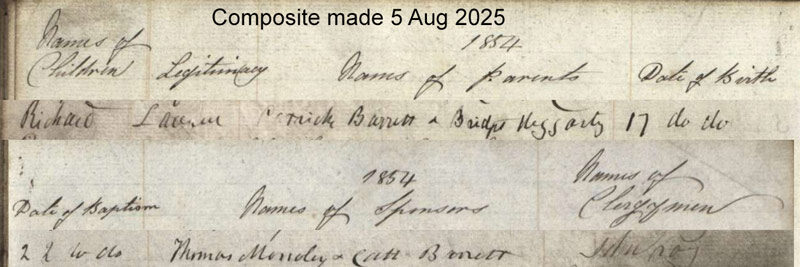 Composite made 5 Aug 2025
Names of 1854
Children Legitimacy Names of Parents Date of Birth
Richard Barrett & Bridgt Heggarty 17 do do
1854 Names of
Date of Baptism Names of Sponsors Clergymen
22 do do Thomas & Cath Barrett John